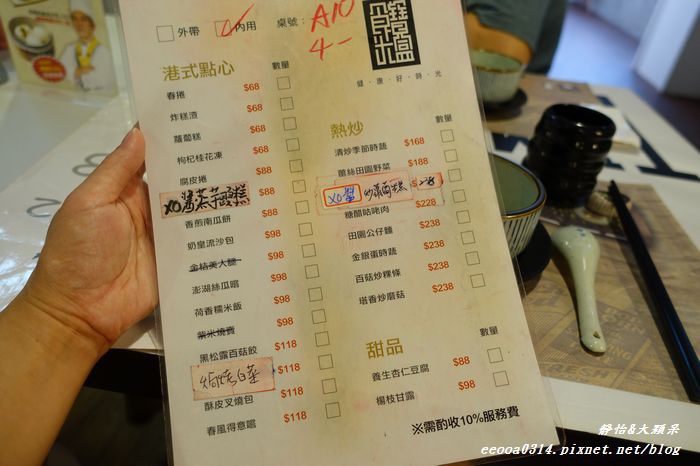 外帶 內用 桌號: A10
4-
健·康·好·時·光
港式點心 數量
春捲 $68
炸糕渣 $68
蘿蔔糕 $68
枸杞桂花凍 $68
腐皮捲 $88
$88
香煎南瓜餅 $88
奶皇流沙包 $98
金結美人腿 $98
澎湖絲瓜嚐 $98
荷香糯米飯 $98
紫米燒賣 $98
黑松露百菇餃 $118
焗烤白菜 $118
酥皮叉燒包 $118
春風得意嚐 $118
熱炒 數量
清炒季節時蔬 $168
薑絲田園野菜 $188
XO醬 炒蘿蔔糕 $228
糖醋咕咾肉 $228
田園公仔麵 $238
金銀蛋時蔬 $238
百菇炒粿條 $238
塔香炒蘑菇 $238
甜品 數量
養生杏仁豆腐 $88
楊枝甘露 $98
※需酌收10%服務費
靜怡&大顆呆
eeooa0314.pixnet.net/blog